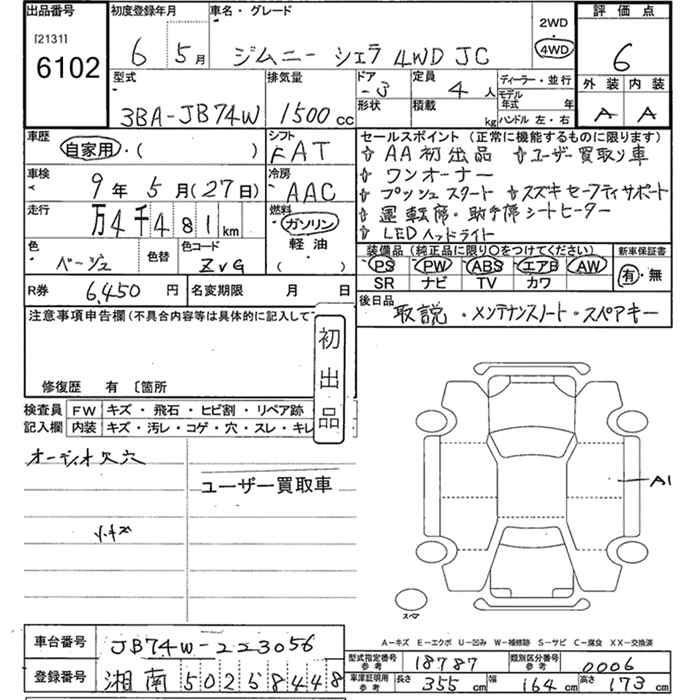 出品番号 初度登録年月 車名・グレード 評価点
[2131] 6102 6 5月 ジムニー シェラ 4WD JC 2WD 4WD 6
外装 内装
A A
型式 排気量 ドア 定員 ディーラー・並行
3BA-JB74W 1500cc -3 4人 モデル年式 年
形状 積載 kg ハンドル 左・右
車歴 シフト セールスポイント (正常に機能するものに限ります)
自家用・( ) FAT AA初出品 ユーザー買取り車
ワンオーナー
車検 冷房
9年5月(27日) AAC プッシュスタート スズキセーフティサポート
走行 燃料 運転席・助手席シートヒーター
万4千481km ガソリン LEDヘッドライト
軽油
( )
色 色替 色コード 装備品 (純正品に限り○をつけてください) 新車保証書
ベージュ ZVG PS PW ABS エアB AW 有・無
SR ナビ TV カワ
R券 6,450円 名変期限 月 日
後日品 取説・メンテナンスノート・スペアキー
注意事項申告欄(不具合内容等は具体的に記入して
初出品
修復歴 有 〔箇所
検査員 FW キズ・飛石・ヒビ割・リペア跡
記入欄 内装 キズ・汚レ・コゲ・穴・スレ・キレ
オーディオ欠穴
ユーザー買取車
小キズ
A1
スペア
A-キズ E-エクボ U-凹み W-補修跡 S-サビ C-腐食 XX-交換済
車台番号 JB74W-223056
型式指定番号 参考 18787 類別区分番号 参考 0006
登録番号 湘南 502 58448
車庫証明用 参考 長さ 355cm 幅 164cm 高さ 173cm